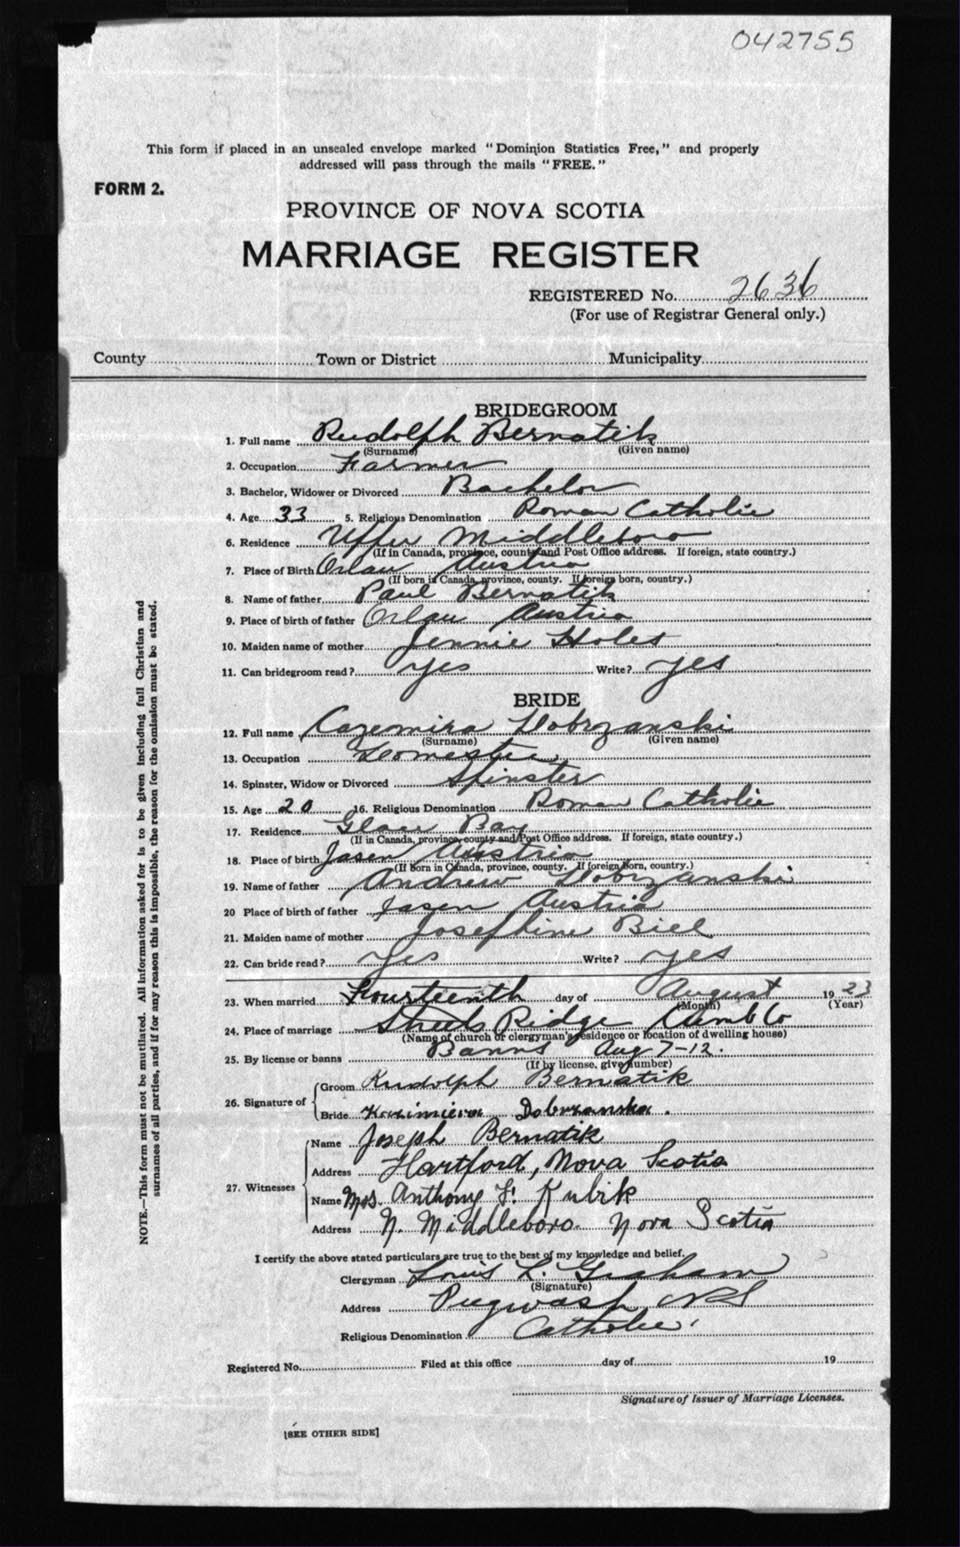 042755
This form if placed in an unsealed envelope marked "Dominion Statistics Free," and properly
addressed will pass through the mails "FREE."
FORM 2.
PROVINCE OF NOVA SCOTIA
MARRIAGE REGISTER
REGISTERED No. 2636
(For use of Registrar General only.)
County Town or District Municipality
BRIDEGROOM
1. Full name Rudolph Bernatik
(Surname) (Given name)
2. Occupation Farmer
3. Bachelor, Widower or Divorced Bachelor
4. Age 33 5. Religious Denomination Roman Catholic
6. Residence Upper Middleboro
(If in Canada, province, county and Post Office address. If foreign, state country.)
7. Place of Birth Orlau Austria
(If born in Canada, province, county. If foreign born, country.)
8. Name of father Paul Bernatik
9. Place of birth of father Orlau Austria
10. Maiden name of mother Jennie Holes
11. Can bridegroom read? yes Write? yes
BRIDE
12. Full name Cazemira Dobrzanski
(Surname) (Given name)
13. Occupation Domestic
14. Spinster, Widow or Divorced Spinster
15. Age 20 16. Religious Denomination Roman Catholic
17. Residence Glace Bay
(If in Canada, province, county and Post Office address. If foreign, state country.)
18. Place of birth Jasen Austria
(If born in Canada, province, county. If foreign born, country.)
19. Name of father Andrew Dobrzanski
20 Place of birth of father Jasen Austria
21. Maiden name of mother Josephine Biel
22. Can bride read? yes Write? yes
23. When married Fourteenth day of August 1923
(Month) (Year)
24. Place of marriage Ridge Cumb Co
(Name of church or clergyman's residence or location of dwelling house)
25. By license or banns Banns Aug 7-12.
(If by license, give number)
26. Signature of Groom Rudolph Bernatik
Bride Kazimiera Dobrzanska.
27. Witnesses Name Joseph Bernatik
Address Hartford, Nova Scotia
Name Mrs. Anthony F. Kubik
Address N. Middleboro. Nova Scotia
I certify the above stated particulars are true to the best of my knowledge and belief.
Clergyman Louis L. Graham
(Signature)
Address Pugwash NS
Religious Denomination Catholic
Registered No. Filed at this office day of 19
Signature of Issuer of Marriage Licenses.
[SEE OTHER SIDE]
NOTE.—This form must not be mutilated. All information asked for is to be given including full Christian and
surnames of all parties, and if for any reason this is impossible, the reason for the omission must be stated.